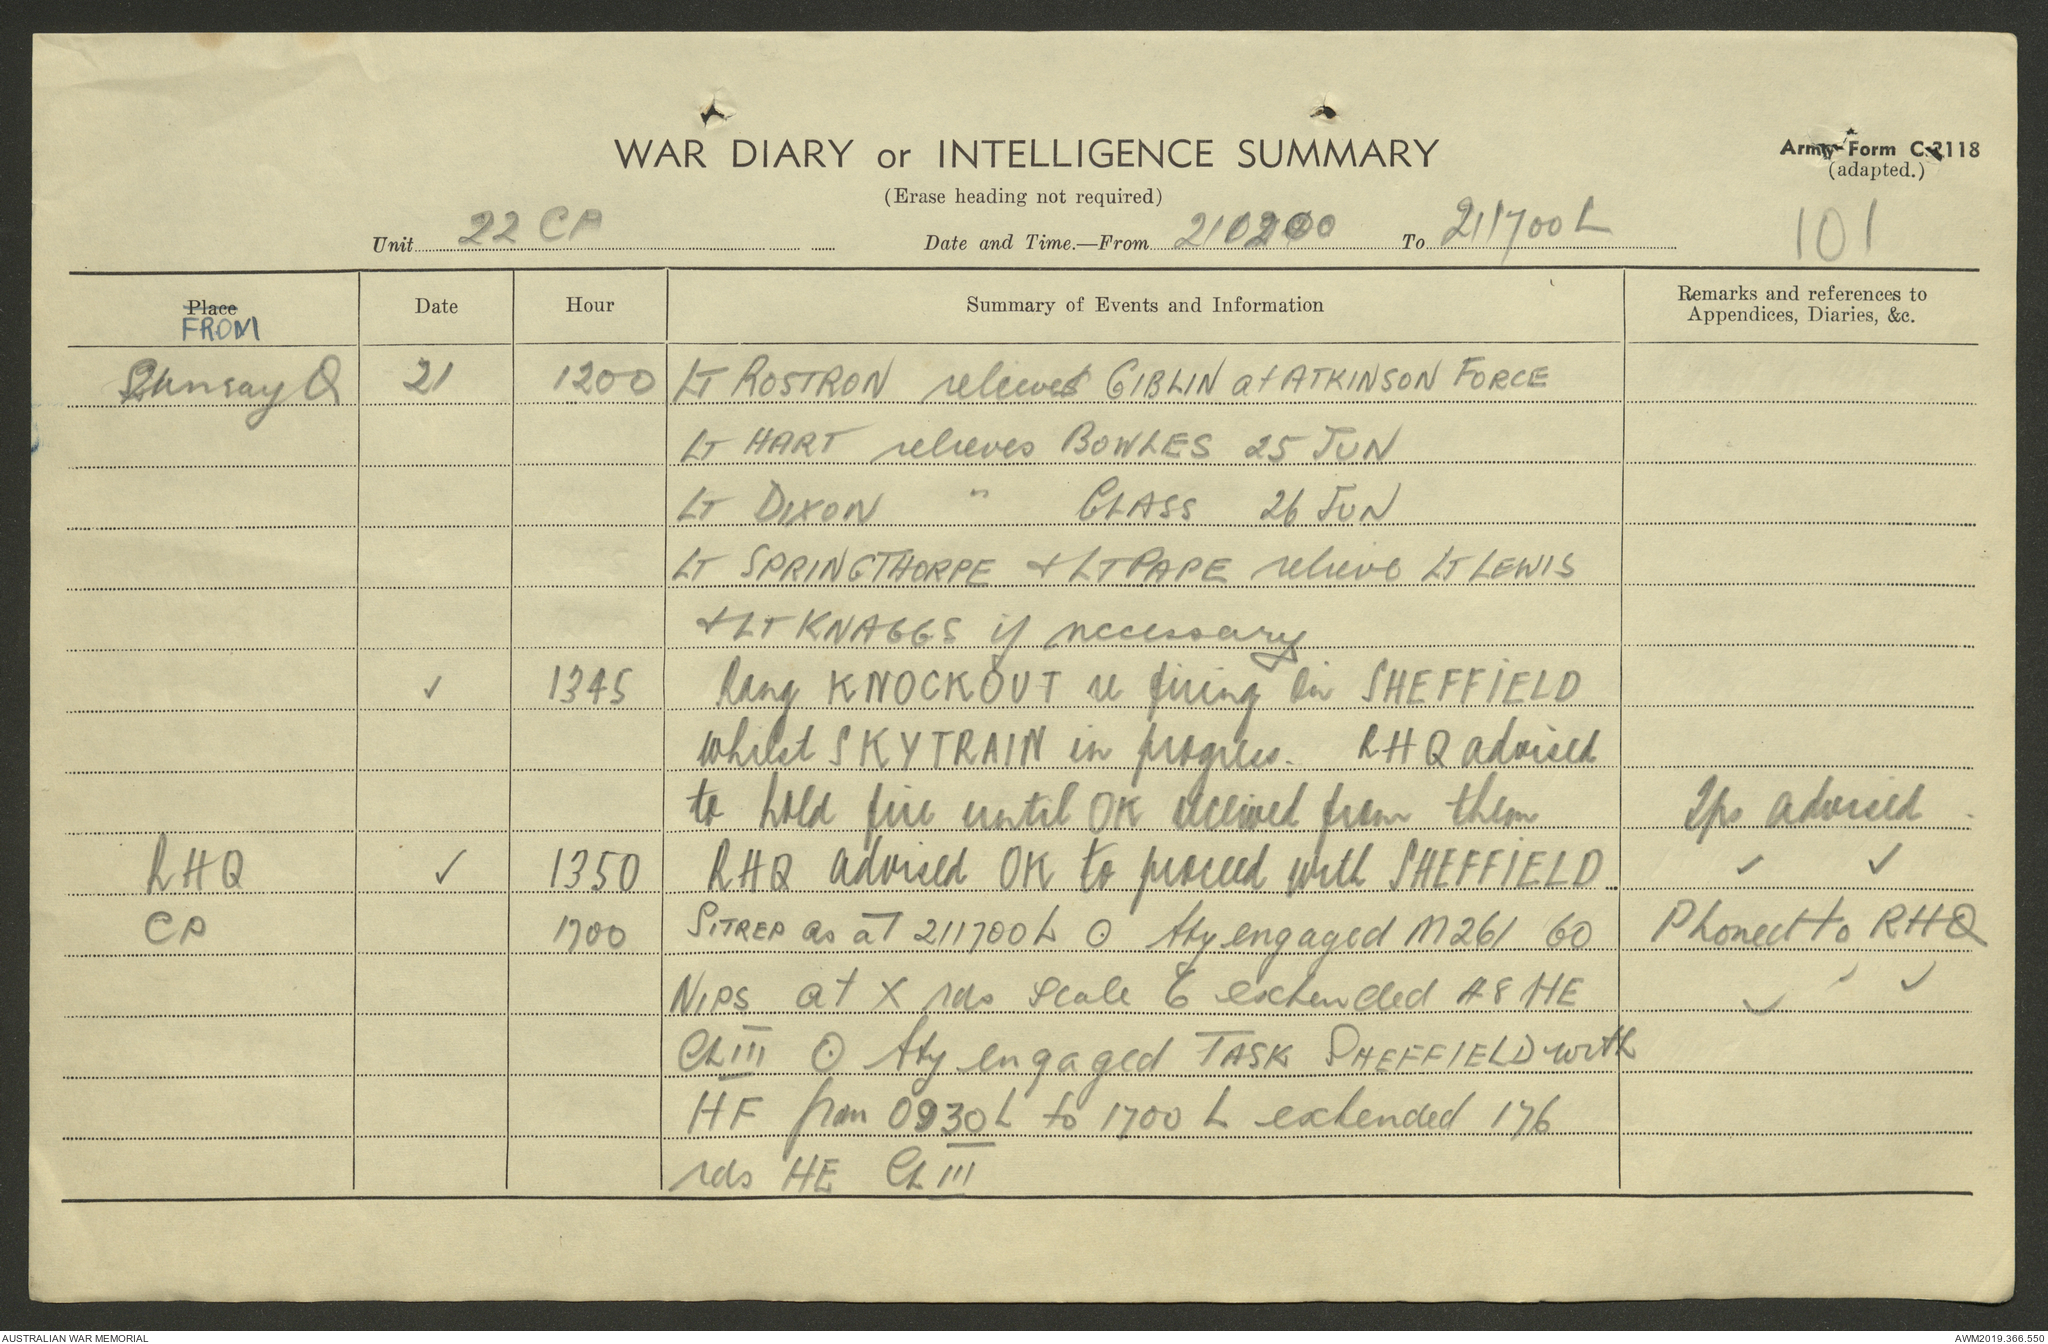 WAR DIARY or INTELLIGENCE SUMMARY
(Erase heading not required)
Army Form C.2118
(adapted.)
Unit 22 CP Date and Time.—From 210200 To 211700L
101
Place Date Hour Summary of Events and Information Remarks and references to
FROM Appendices, Diaries, &c.
Q 21 1200 LT ROSTRON relieves GIBLIN at ATKINSON FORCE
LT HART relieves BOWLES 25 JUN
LT DIXON " GLASS 26 JUN
LT SPRINGTHORPE + LT PAPE relieve LT LEWIS
+ LT KNAGGS if necessary
✓ 1345 Rang KNOCKOUT re firing on SHEFFIELD
whilst SKYTRAIN in progress. RHQ advised
to hold fire until OK received from them advised
RHQ ✓ 1350 RHQ advised OK to proceed with SHEFFIELD. ✓ ✓
CP 1700 SITREP as at 211700L ⊙ Aty engaged M261 60 Phoned to RHQ
NIPS at X rds Scale 6 extended 48 HE ✓ ✓
CH III ⊙ Aty engaged TASK SHEFFIELD with
HF from 0930L to 1700L extended 176
rds HE CH III
AUSTRALIAN WAR MEMORIAL
AWM2019.366.550